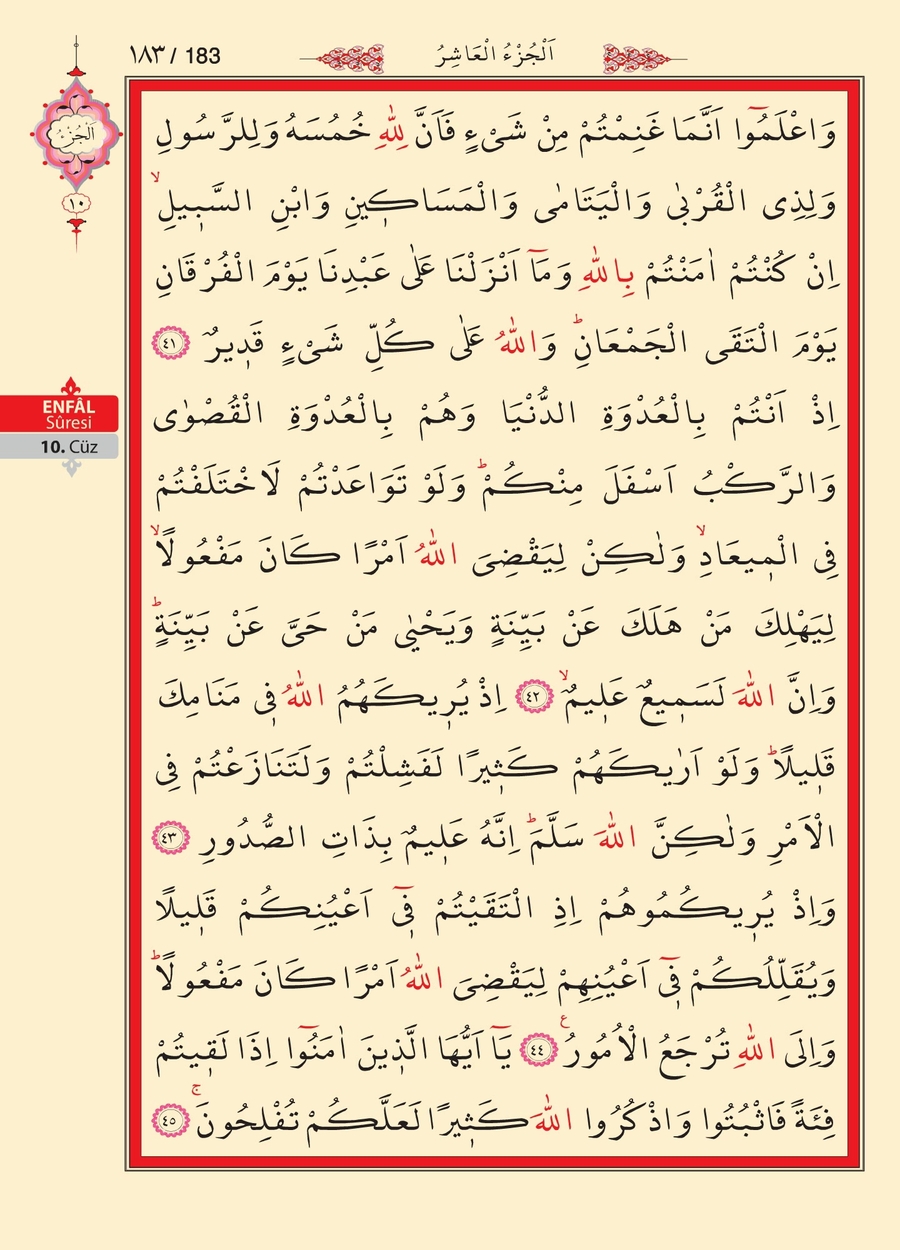 ١٨٣ / 183
اَلْجُزْءُ الْعَاشِرُ
اَلْجُزْءُ
١٠
وَاعْلَمُٓوا اَنَّمَا غَنِمْتُمْ مِنْ شَیْءٍ فَاَنَّ لِلّٰهِ خُمُسَهُ وَلِلرَّسُولِ
وَلِذِی الْقُرْبٰى وَالْيَتَامٰى وَالْمَسَاك۪ينِ وَابْنِ السَّب۪يلِۙ
اِنْ كُنْتُمْ اٰمَنْتُمْ بِاللّٰهِ وَمَٓا اَنْزَلْنَا عَلٰى عَبْدِنَا يَوْمَ الْفُرْقَانِ
يَوْمَ الْتَقَى الْجَمْعَانِۜ وَاللّٰهُ عَلٰى كُلِّ شَیْءٍ قَد۪يرٌ ﴿٤١﴾
ENFÂL
Sûresi
10. Cüz
اِذْ اَنْتُمْ بِالْعُدْوَةِ الدُّنْيَا وَهُمْ بِالْعُدْوَةِ الْقُصْوٰى
وَالرَّكْبُ اَسْفَلَ مِنْكُمْۜ وَلَوْ تَوَاعَدْتُمْ لَاخْتَلَفْتُمْ
فِی الْم۪يعَادِۙ وَلٰكِنْ لِيَقْضِیَ اللّٰهُ اَمْرًا كَانَ مَفْعُولًاۙ
لِيَهْلِكَ مَنْ هَلَكَ عَنْ بَيِّنَةٍ وَيَحْيٰى مَنْ حَیَّ عَنْ بَيِّنَةٍۜ
وَاِنَّ اللّٰهَ لَسَم۪يعٌ عَل۪يمٌۙ ﴿٤٢﴾ اِذْ يُر۪يكَهُمُ اللّٰهُ ف۪ی مَنَامِكَ
قَل۪يلًاۜ وَلَوْ اَرٰيكَهُمْ كَث۪يرًا لَفَشِلْتُمْ وَلَتَنَازَعْتُمْ فِی
الْاَمْرِ وَلٰكِنَّ اللّٰهَ سَلَّمَۜ اِنَّهُ عَل۪يمٌ بِذَاتِ الصُّدُورِ ﴿٤٣﴾
وَاِذْ يُر۪يكُمُوهُمْ اِذِ الْتَقَيْتُمْ ف۪ٓی اَعْيُنِكُمْ قَل۪يلًا
وَيُقَلِّلُكُمْ ف۪ٓی اَعْيُنِهِمْ لِيَقْضِیَ اللّٰهُ اَمْرًا كَانَ مَفْعُولًاۜ
وَاِلَى اللّٰهِ تُرْجَعُ الْاُمُورُ۟ ﴿٤٤﴾ يَٓا اَيُّهَا الَّذ۪ينَ اٰمَنُٓوا اِذَا لَق۪يتُمْ
فِئَةً فَاثْبُتُوا وَاذْكُرُوا اللّٰهَ كَث۪يرًا لَعَلَّكُمْ تُفْلِحُونَۚ ﴿٤٥﴾